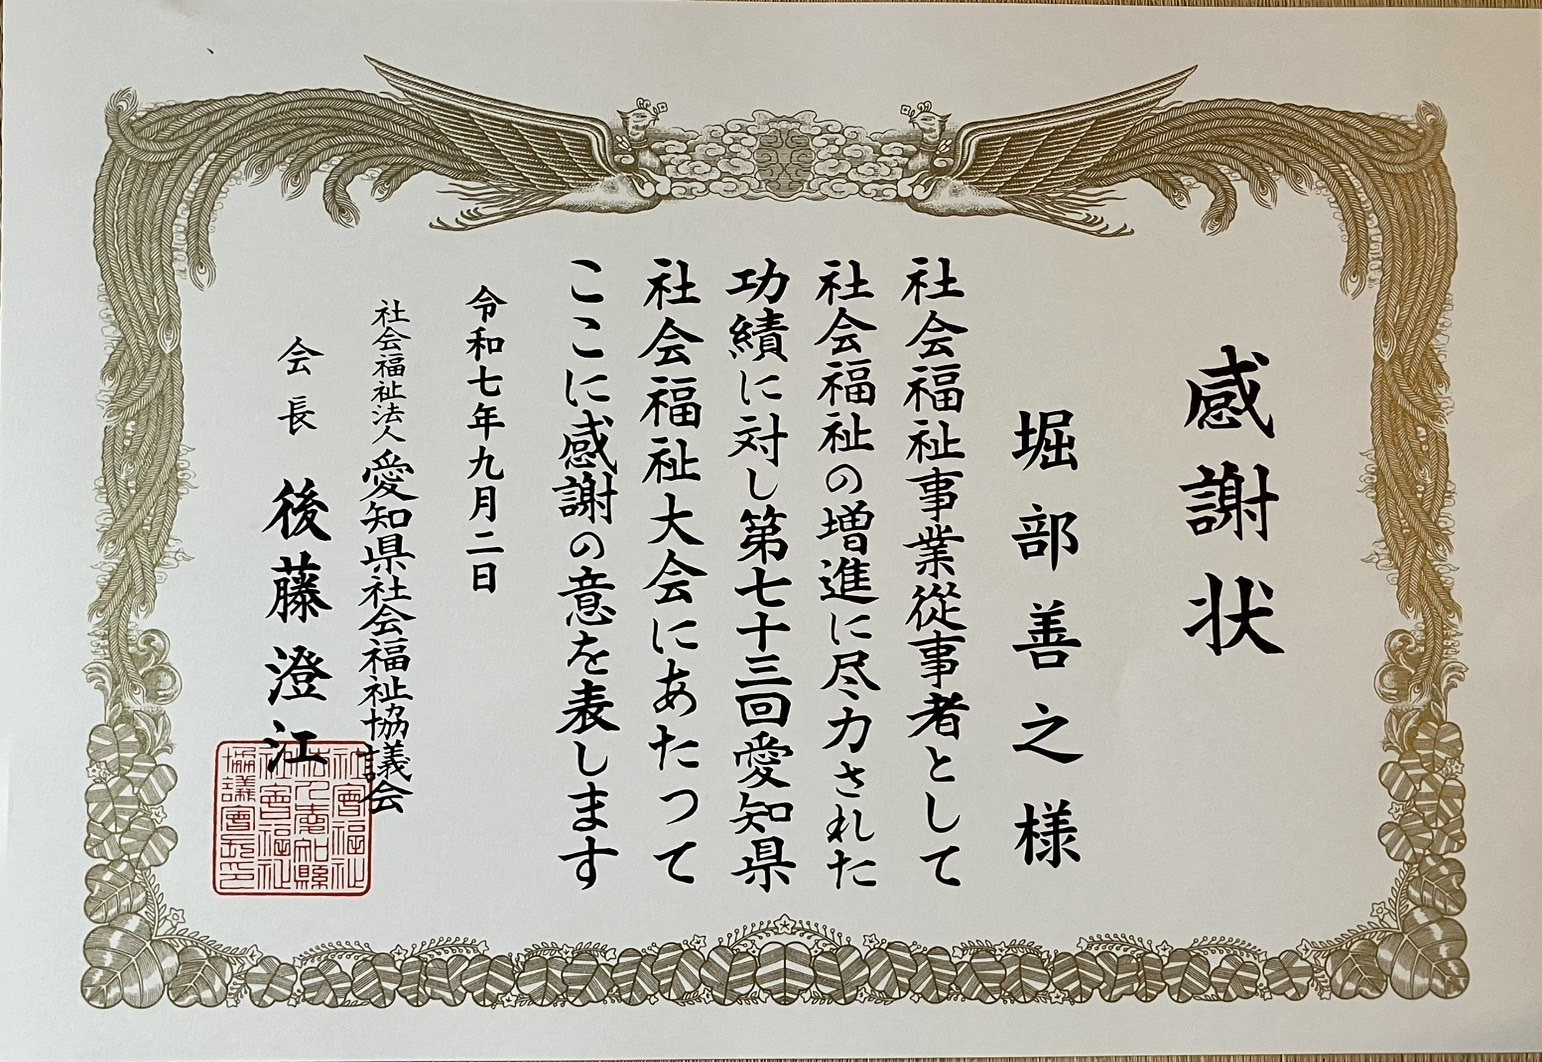 感謝状
堀部善之様
社会福祉事業従事者として
社会福祉の増進に尽力された
功績に対し第七十三回愛知県
社会福祉大会にあたつて
ここに感謝の意を表します
令和七年九月二日
社会福祉法人愛知県社会福祉協議会
会長 後藤澄江